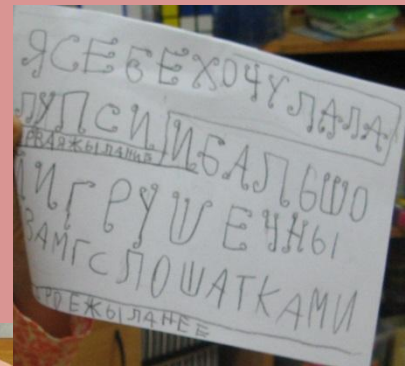 ЯСЕБЕХОЧУЛАЛА
ЛУПСИ ИБАЛЬШО
РВАЯЖЫЛАНИЕ
ЙИГРУШЕЧНЫ
ЗАМГСЛОШАТКАМИ
РОЕЖЫЛАНЕЕ